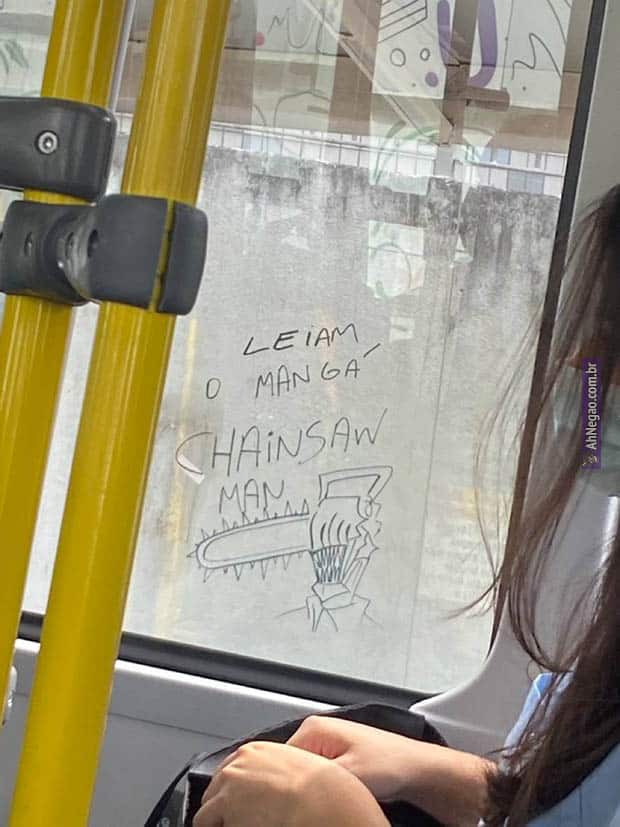 LEiAM
O MANGÁ
CHAiNSAW
MAN
AhNegao.com.br